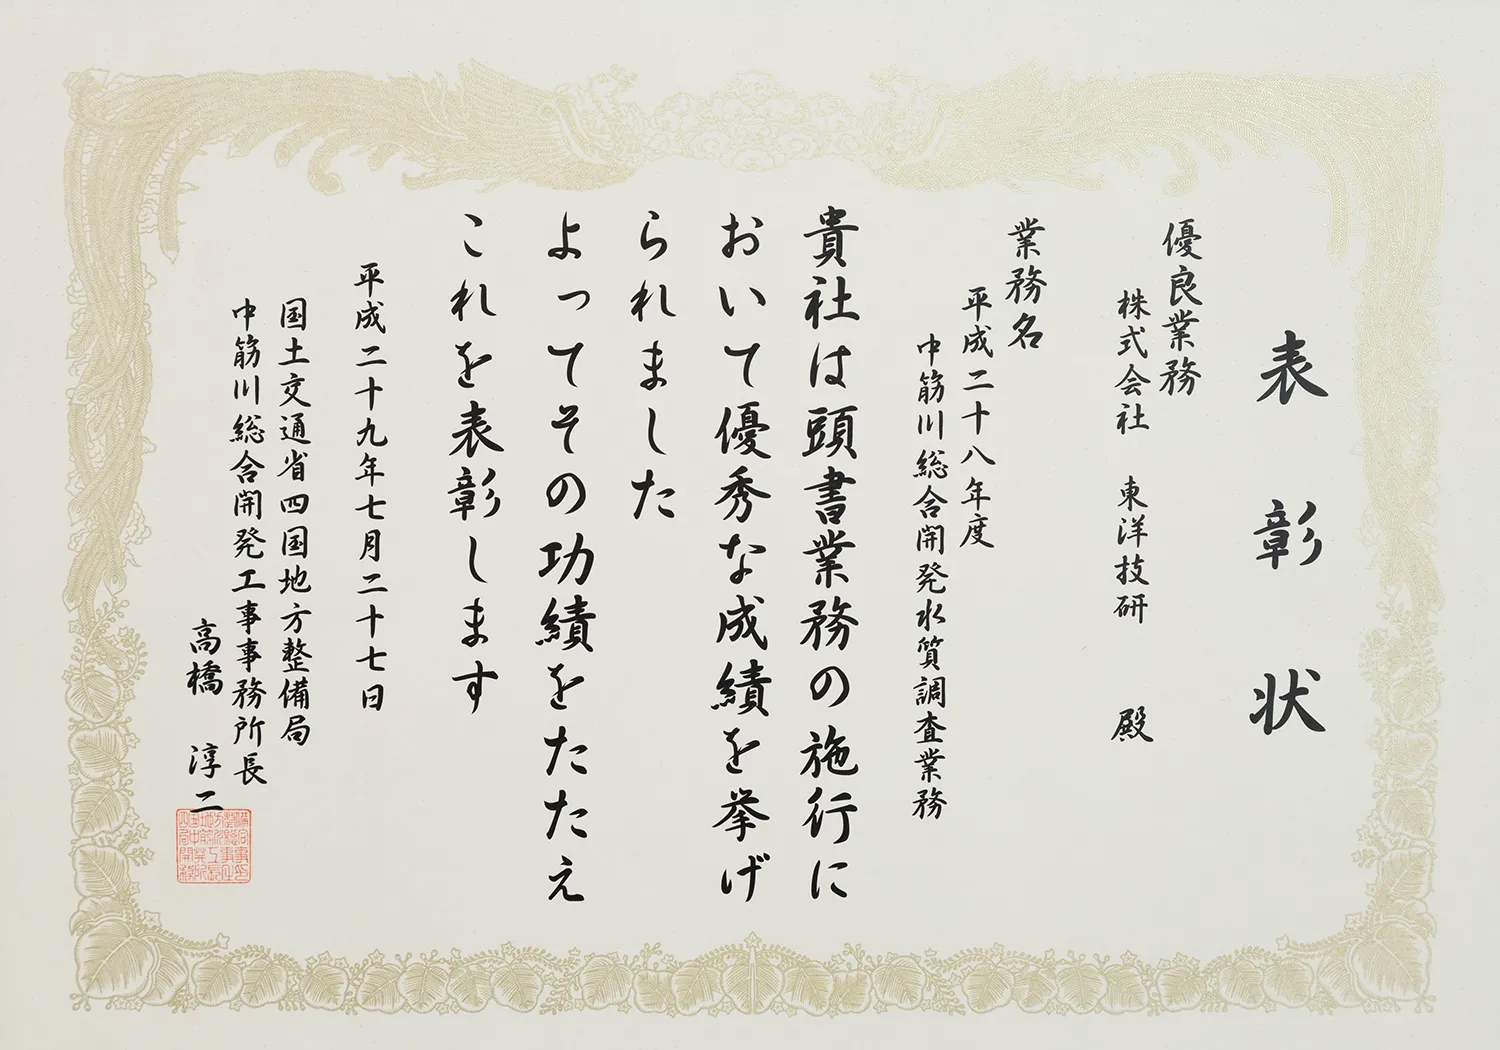 表彰状
優良業務
株式会社 東洋技研 殿
業務名
平成二十八年度
中筋川総合開発水質調査業務
貴社は頭書業務の施行に
おいて優秀な成績を挙げ
られました
よってその功績をたたえ
これを表彰します
平成二十九年七月二十七日
国土交通省四国地方整備局
中筋川総合開発工事事務所長
高橋 淳二